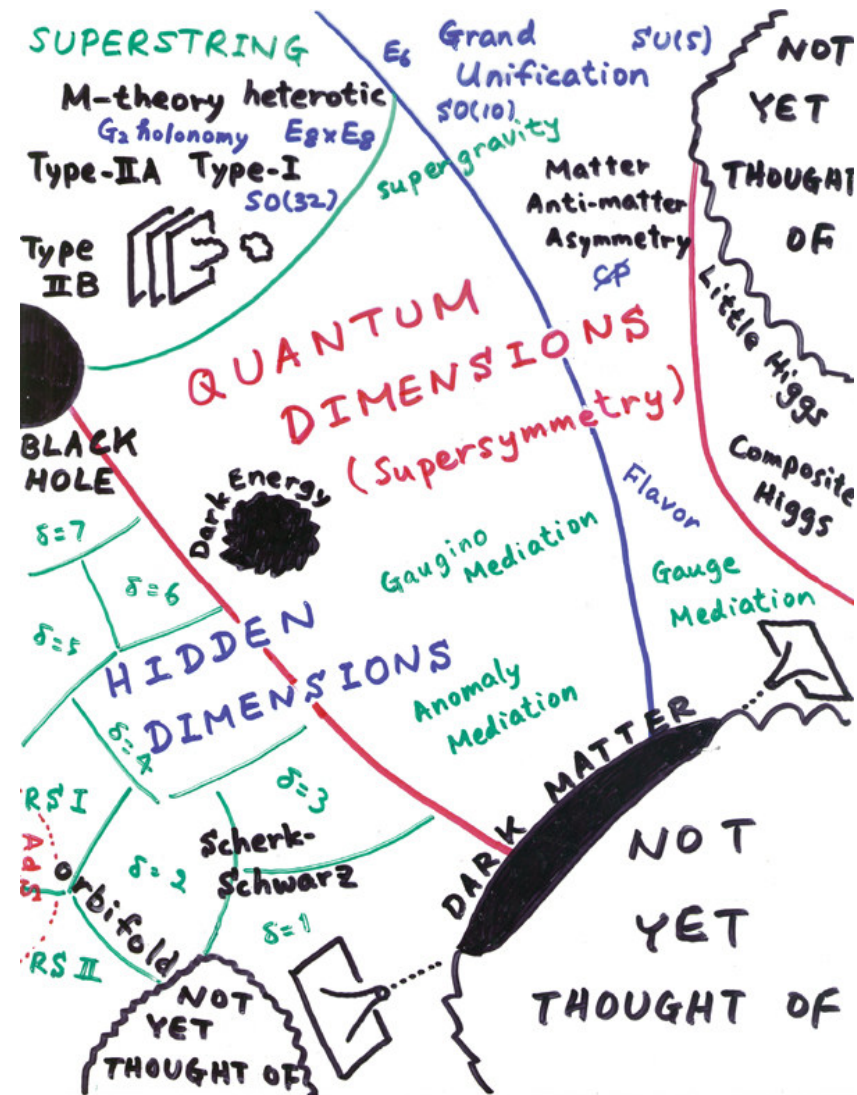 SUPERSTRING
M-theory heterotic
G₂ holonomy E₈×E₈
Type-IIA Type-I
SO(32)
Type
IIB
E₆
Grand
Unification
SU(5)
SO(10)
supergravity
Matter
Anti-matter
Asymmetry
CP
NOT
YET
THOUGHT
OF
Little Higgs
Composite
Higgs
QUANTUM
DIMENSIONS
(Supersymmetry)
BLACK
HOLE
Dark Energy
Flavor
Gaugino
Mediation
Gauge
Mediation
Anomaly
Mediation
δ=7
δ=6
δ=5
HIDDEN
DIMENSIONS
δ=4
δ=3
RS I
AdS
RS II
orbifold
δ=2
Scherk-
Schwarz
δ=1
DARK MATTER
NOT
YET
THOUGHT OF
NOT
YET
THOUGHT OF